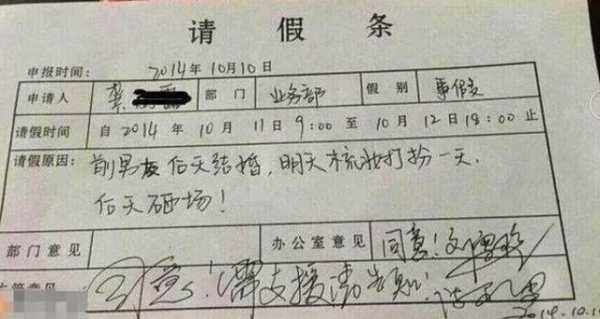 请假条
申报时间： 2014年10月10日
申请人 龚 部门 业务部 假别 事假
请假时间 自2014年10月11日9:00至10月12日18:00止
请假原因： 前男友后天结婚，明天梳妆打扮一天.
后天砸场！
部门意见 办公室意见 同意！
管意见 同意！需支援请告知！
2014.10.1